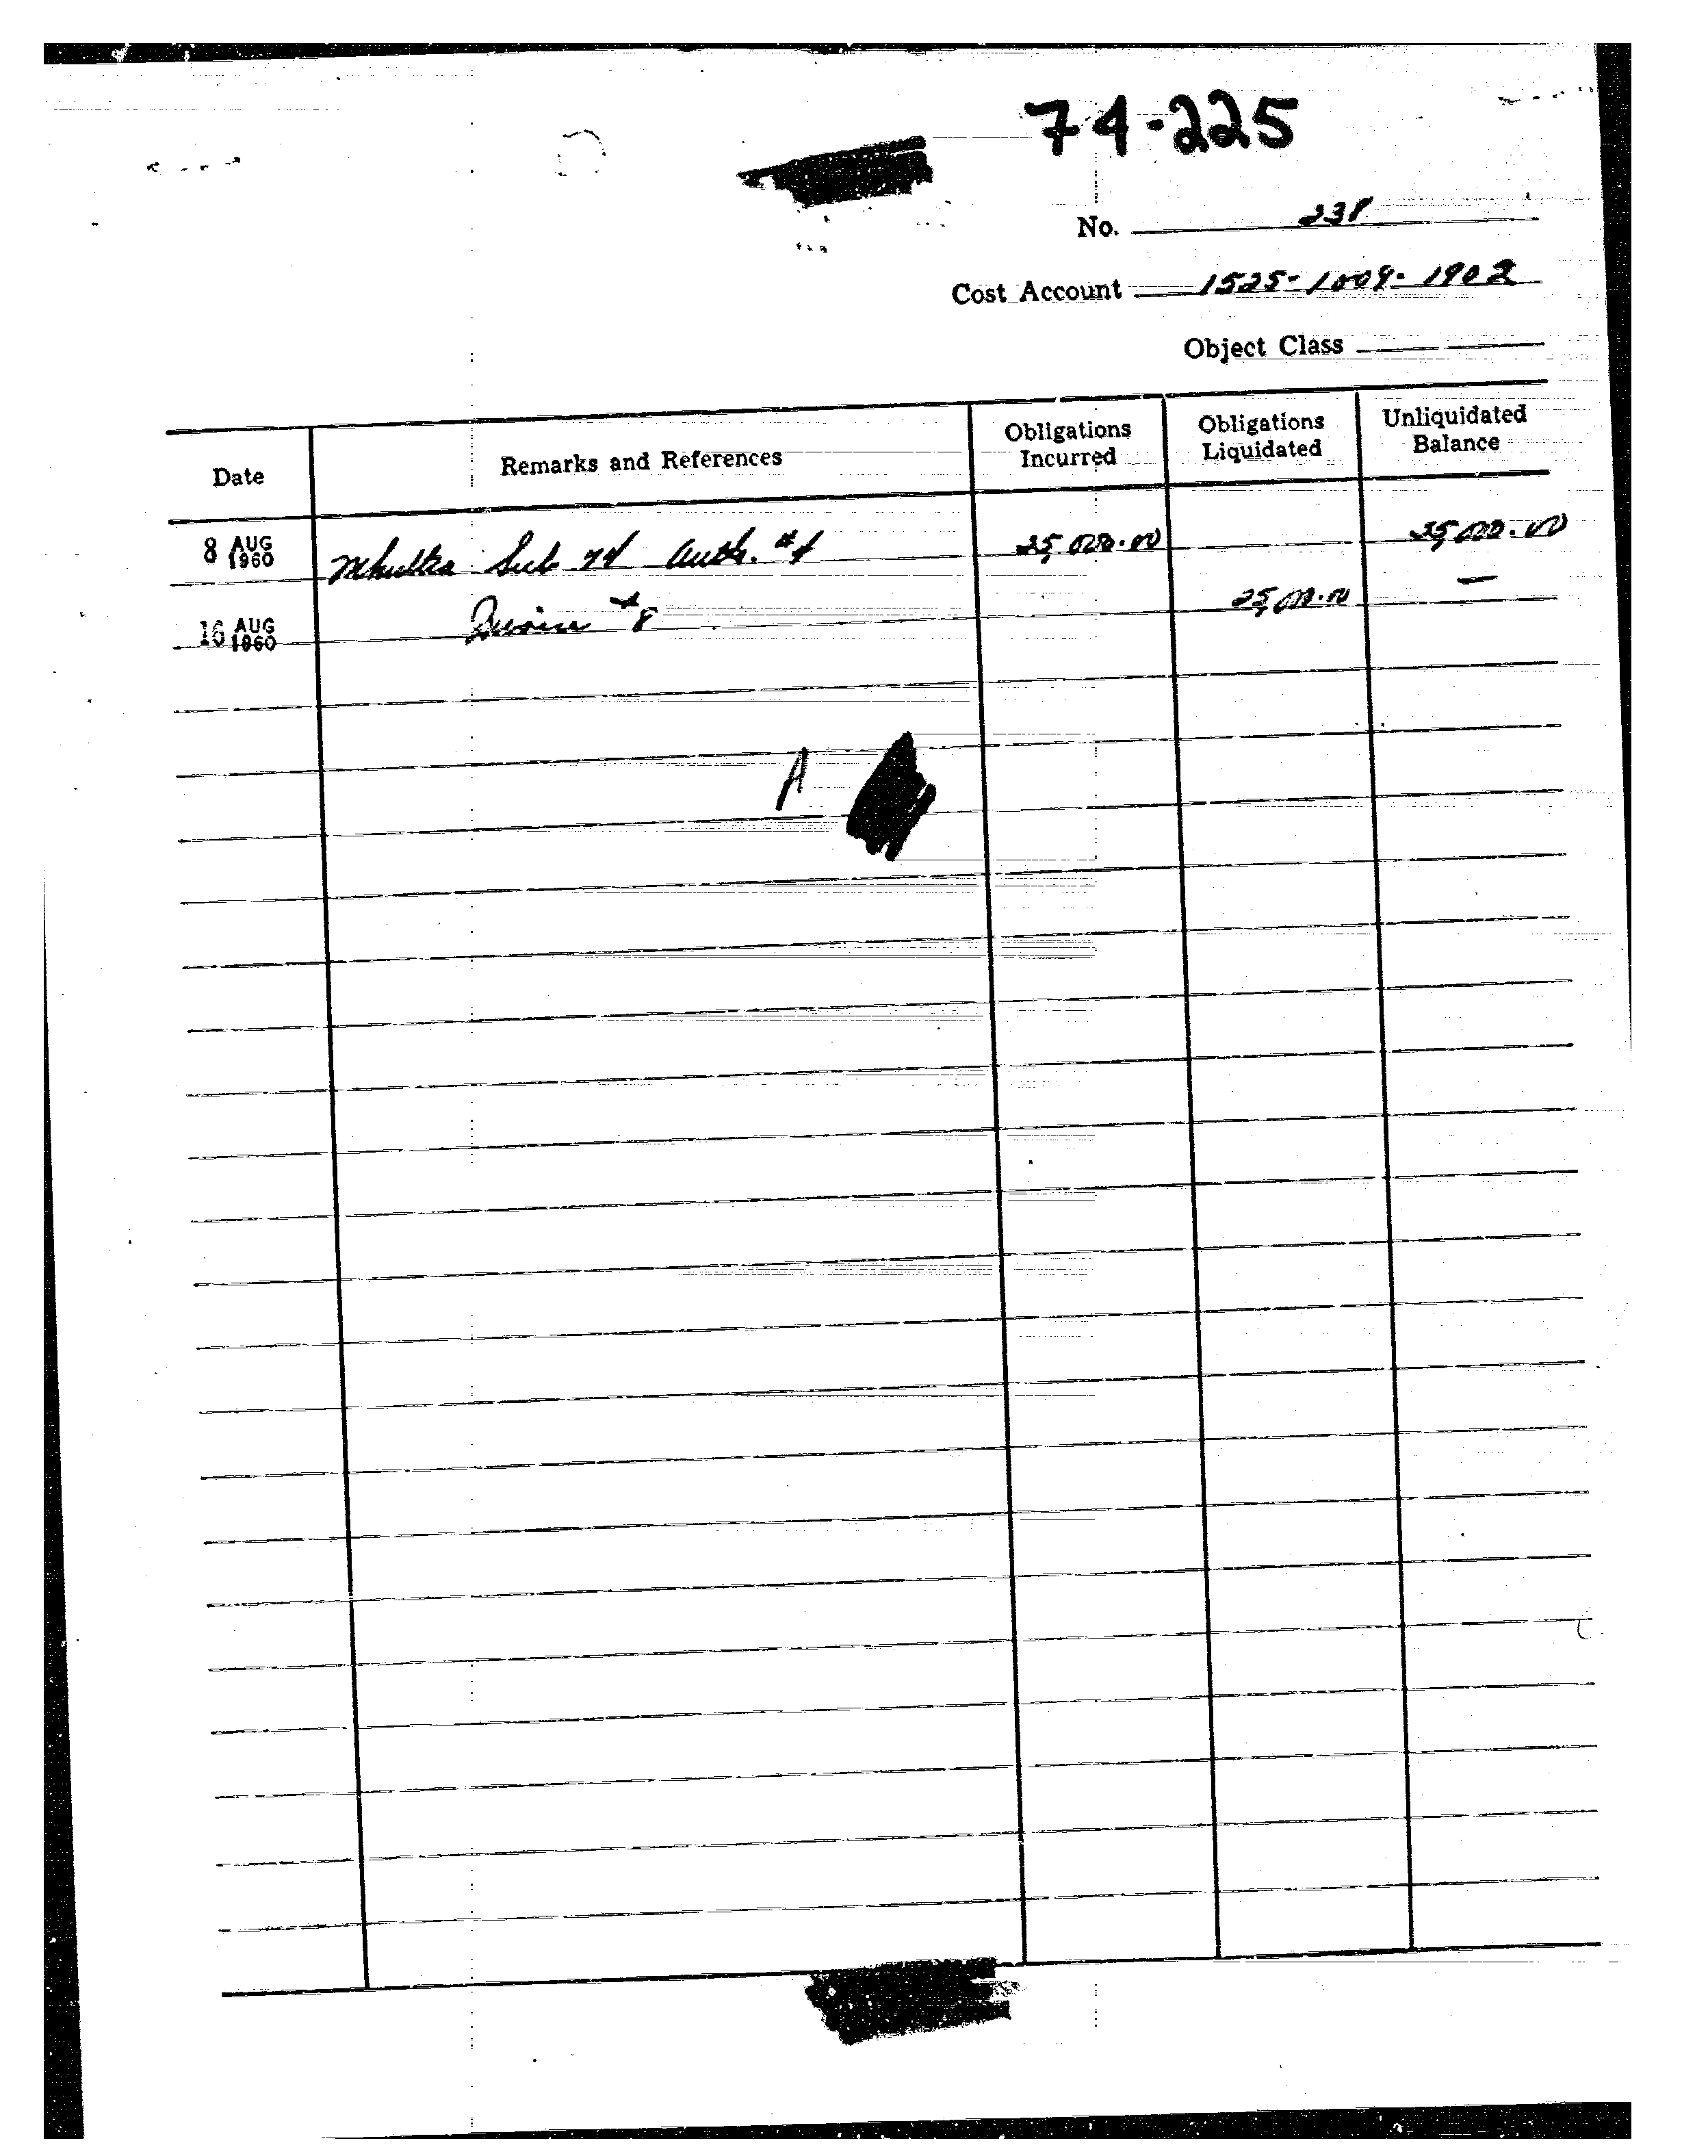 74-225
No. 238
Cost Account 1525-1009-1902
Object Class
Date Remarks and References Obligations Incurred Obligations Liquidated Unliquidated Balance
8 AUG 1960 Mkultra Sub 74 Auth. #4 25,000.00 25,000.00
16 AUG 1960 #8 25,000.00 —
A